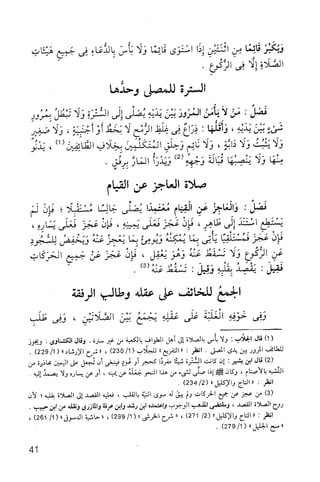 وَيُكَبِّرُ قَائِمًا مِنِ اثْنَتَيْنِ إِذَا اسْتَوَى قَائِمًا وَلَا بَأْسَ بِالدُّعَاءِ فِى جَمِيعِ هَيْئَاتِ
الصَّلَاةِ إِلَّا فِى الرُّكُوعِ .
السترة للمصلى وحدُّها
فَصْلٌ : مَنْ لَا يَأْمَنُ الْمُرُورَ بَيْنَ يَدَيْهِ يُصَلِّى إِلَى السُّتْرَةِ وَلَا تَبْطُلُ بِمُرُورِ
شَىْءٍ بَيْنَ يَدَيْهِ ، وَأَقَلُّهَا : ذِرَاعٌ فِى غِلَظِ الرُّمْحِ لَا بِخَطٍّ أَوْ أَجْنَبِيَّةٍ ، وَلَا صَغِيرٍ
لَا يَثْبُتُ وَلَا دَابَّةٍ ، وَلَا نَائِمٍ وَحِلَقِ الْمُتَكَلِّمِينَ بِخِلَافِ الطَّائِفِينَ (1) ، يَدْنُو
مِنْهَا وَلَا يَنْصِبُهَا قُبَالَةَ وَجْهِهِ (2) وَيَدْرَأُ الْمَارَّ بِرِفْقٍ .
صلاة العاجز عن القيام
فَصْلٌ : وَالْعَاجِزُ عَنِ الْقِيَامِ مُعْتَمِدًا يُصَلِّى جَالِسًا مُسْتَقِلًّا ؛ فَإِنْ لَمْ
يَسْتَطِعِ اسْتَنَدَ إِلَى طَاهِرٍ ، فَإِنْ عَجَزَ فَعَلَى يَمِينِهِ ، فَإِنْ عَجَزَ فَعَلَى يَسَارِهِ ،
فَإِنْ عَجَزَ فَمُسْتَلْقِيًا يَأْتِى بِمَا يُمْكِنُهُ وَيُومِئُ بِمَا يَعْجِزُ عَنْهُ وَيَخْفِضُ لِلسُّجُودِ
عَنِ الرُّكُوعِ وَلَا تَسْقُطُ عَنْهُ وَهُوَ يَعْقِلُ ، فَإِنْ عَجَزَ عَنْ جَمِيعِ الْحَرَكَاتِ
فَقِيلَ : يَقْصِدُ بِقَلْبِهِ وَقِيلَ : تَسْقُطُ عَنْهُ (3) .
الجمعُ للخائف على عقله وطالب الرفقة
وَفِى خَوْفِهِ الْغَلَبَةَ عَلَى عَقْلِهِ يَجْمَعُ بَيْنَ الصَّلَاتَيْنِ ، وَفِى طَلَبِ
(1) قال الجلاب : ولا بأس بالصلاة إلى أهل الطواف بالكعبة من غير سترة . وقال ويجوز
للطائف المرور بين يدى المصلى . انظر : « التفريع » للجلاب (1/ 230) ، « شرح الإرشاد » (1/ 229) .
(2) قال ابن بشير : إن كانت السترة شيئًا منفردًا كحجر أو عُودٍ فينبغى أن تُجعل على اليمين محاذرة من
التشبه بالأصنام ، وكان ﷺ إذا صلى لشىء من هذا النحو جعله عن يمينه ، أو عن يساره ولا يصمد إليه .
انظر : « التاج والإكليل » (2/ 234) .
(3) من عجز عن جميع الحركات ولم يبق له سوى النية بالقلب ، فعليه القصد إلى الصلاة بقلبه ؛ لأن
روح الصلاة القصد ، ومقتضى المذهب الوجوب واعتمده ابن رشد وابن عرفة والمازرى ونقله عن ابن حبيب .
انظر : « التاج والإكليل » (2/ 271) ، « شرح الخرشى » (1/ 299) ، « حاشية الدسوقى » (1/ 261) ،
« منح الجليل » (1/ 279) .
41